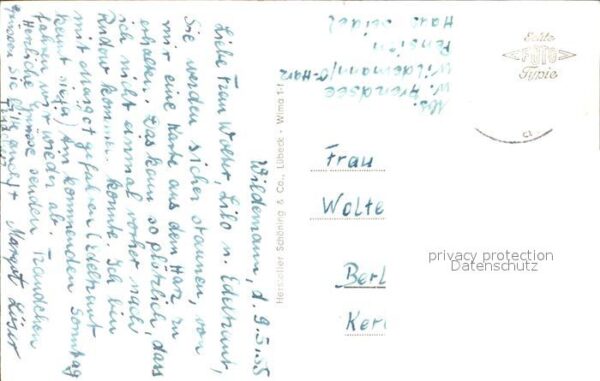 Wildemann, d. 9.5.58
Liebe Frau Wolter, Lilo u. Edeltraut,
Sie werden sicher staunen, von
mir eine Karte aus dem Harz zu
erhalten. Das kam so plötzlich, dass
ich nicht einmal vorher nach
Rudow kommen konnte. Ich bin
mit Margot gefahren (Edeltraut
kennt sie ja) Am kommenden Sonntag
fahren wir wieder ab.
Herzliche Grüsse senden Traudchen
Margot
Hersteller Schöning & Co., Lübeck - Wima 1-f
Abs.
W.
Wildemann/O-Harz
Pension
Haus Seidel
Echte
FOTO
Typie
Frau
Wolte
Berl
Ker
privacy protection
Datenschutz